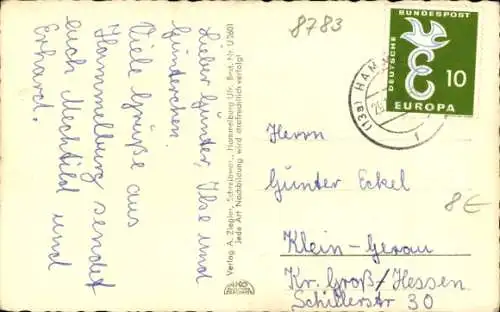 8783
Lieber Günter, Ilse und
Günterchen.
Viele Grüße aus
Hammelburg sendet
euch Mechtild und
Erhard.
Verlag A. Ziegler, Schreibwar., Hammelburg Ufr. Best. Nr. U 3601
Jede Art Nachbildung wird strafrechtlich verfolgt!
DEUTSCHE
BUNDESPOST
10
EUROPA
(13a) HAMM
Herrn
Günter Eckel
8€
Klein-Gerau
Kr. Groß/Hessen
Schillerstr 30